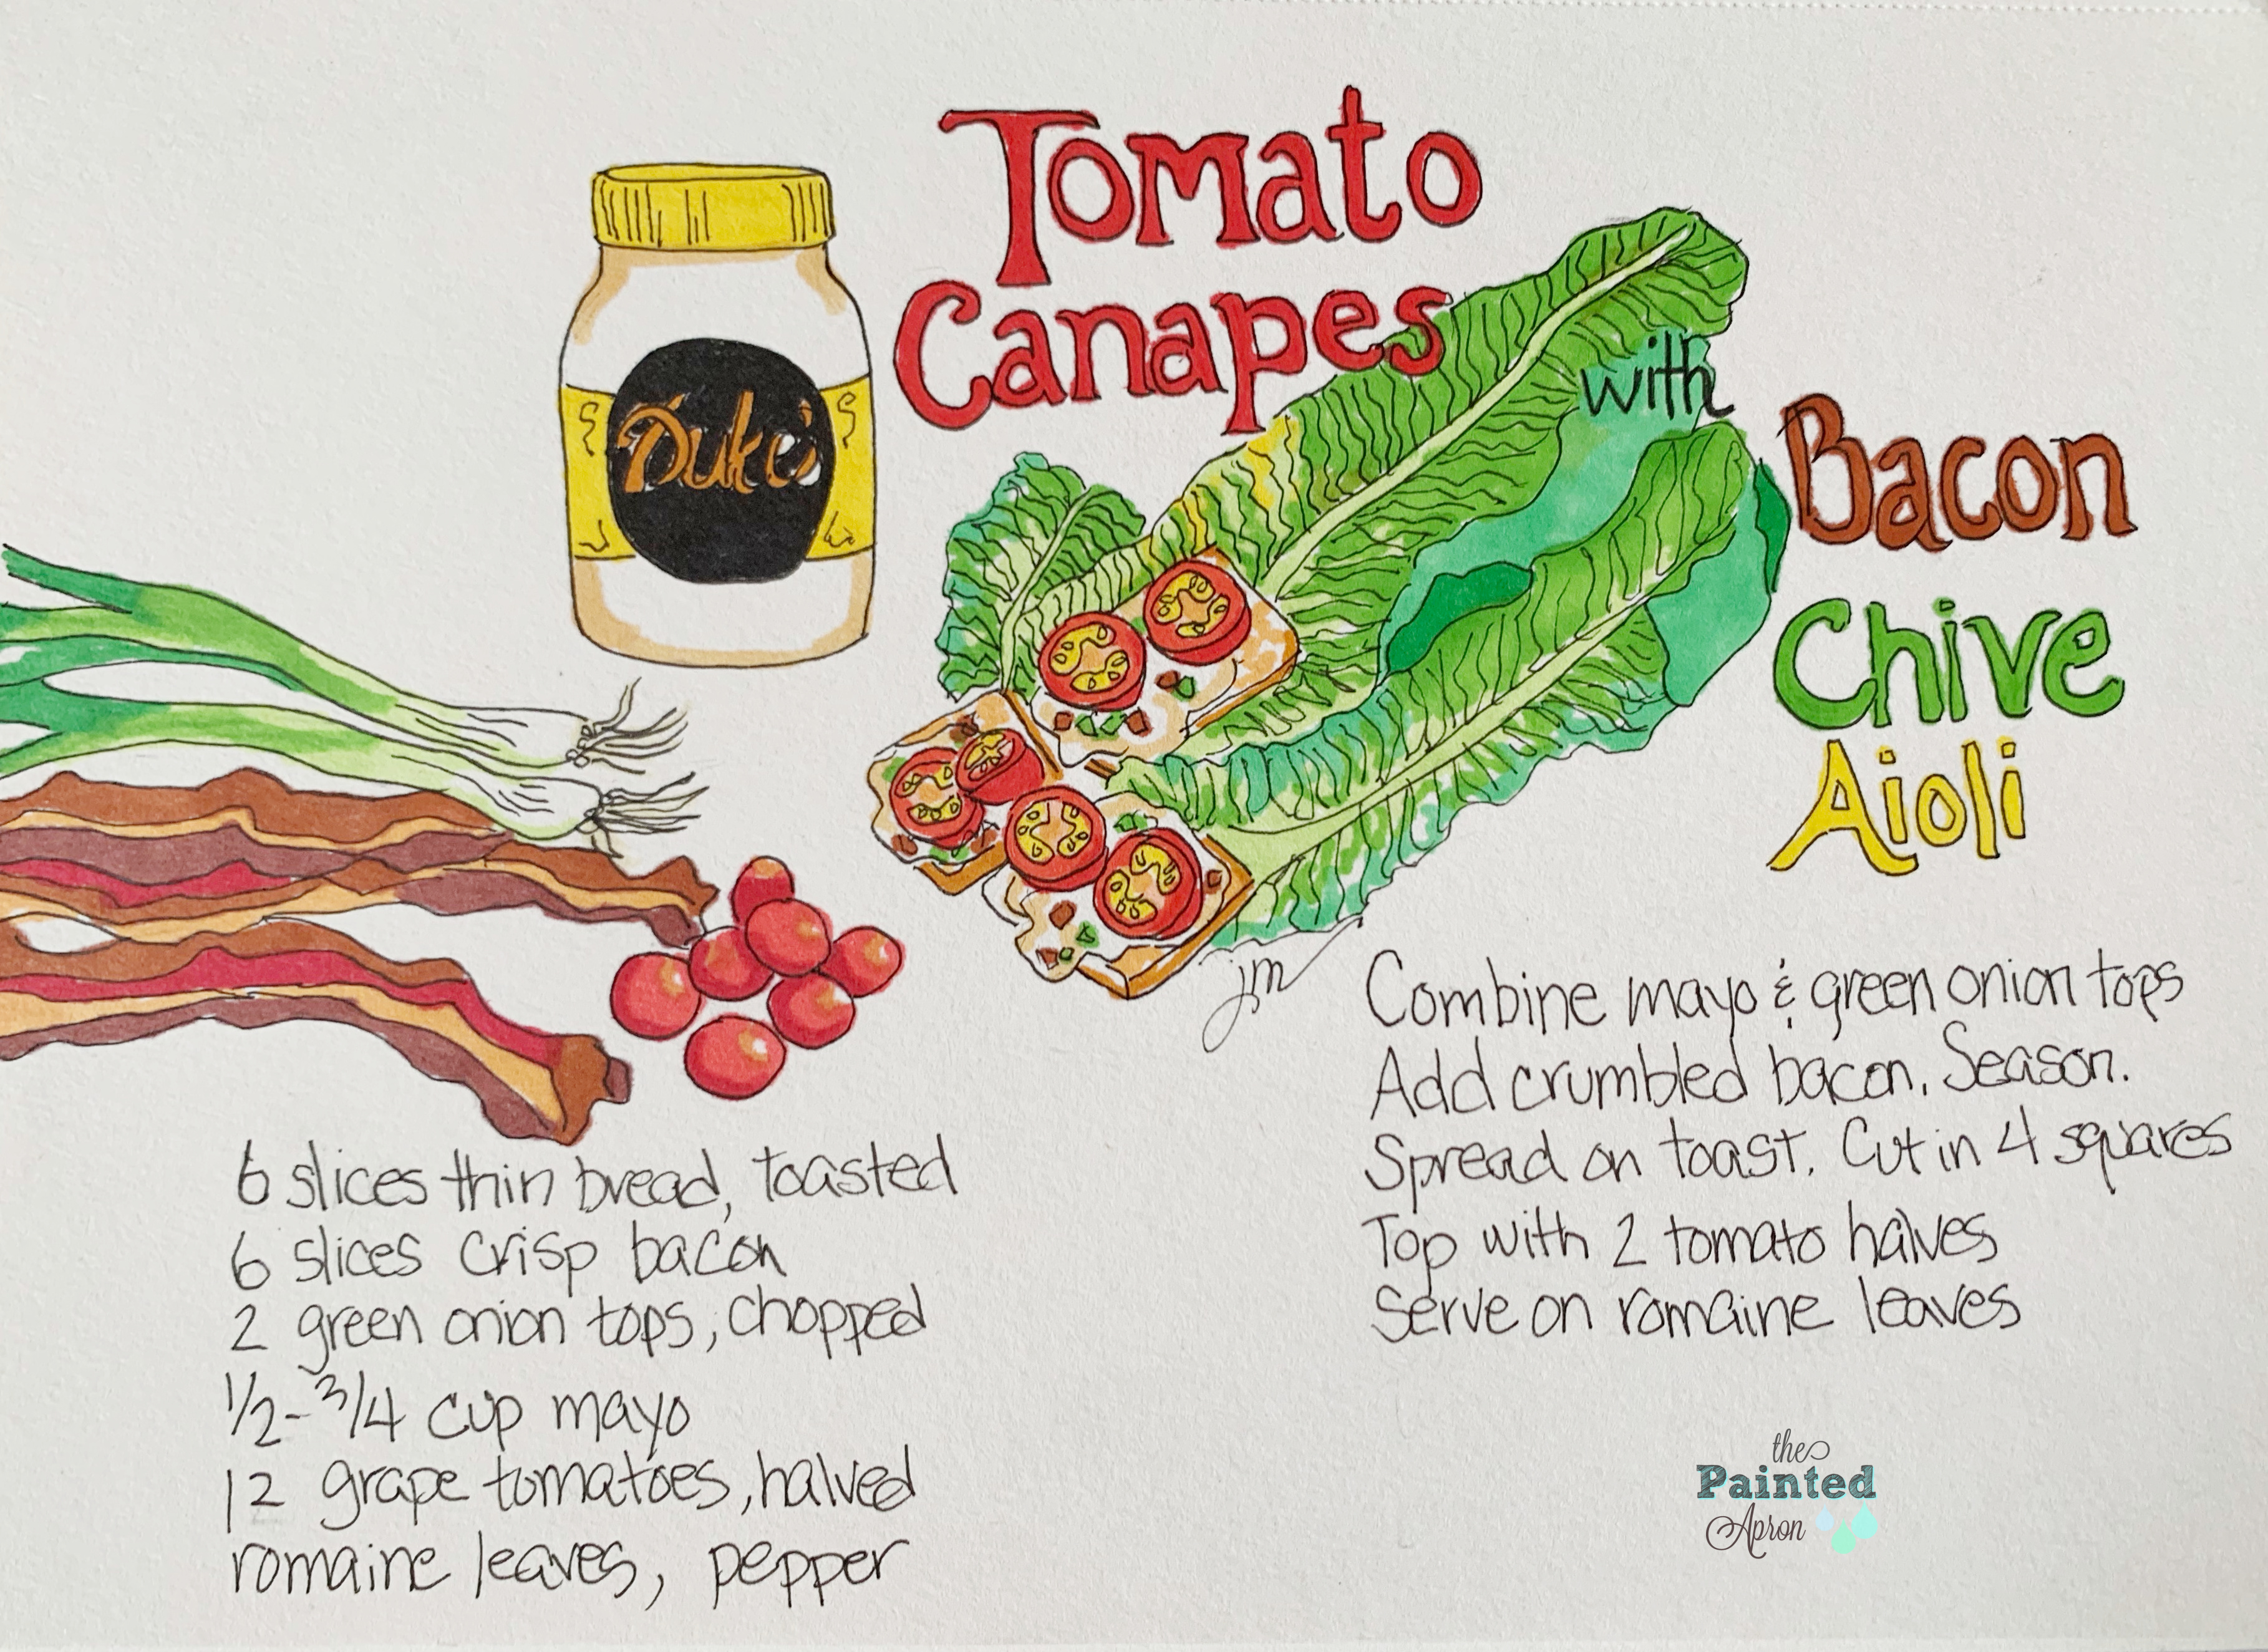 Tomato
Canapes
with
Bacon
Chive
Aioli
Duke's
jm
6 slices thin bread, toasted
6 slices crisp bacon
2 green onion tops, chopped
1/2-3/4 cup mayo
12 grape tomatoes, halved
romaine leaves, pepper
Combine mayo & green onion tops
Add crumbled bacon. Season.
Spread on toast. Cut in 4 squares
Top with 2 tomato halves
Serve on romaine leaves
the
Painted
Apron